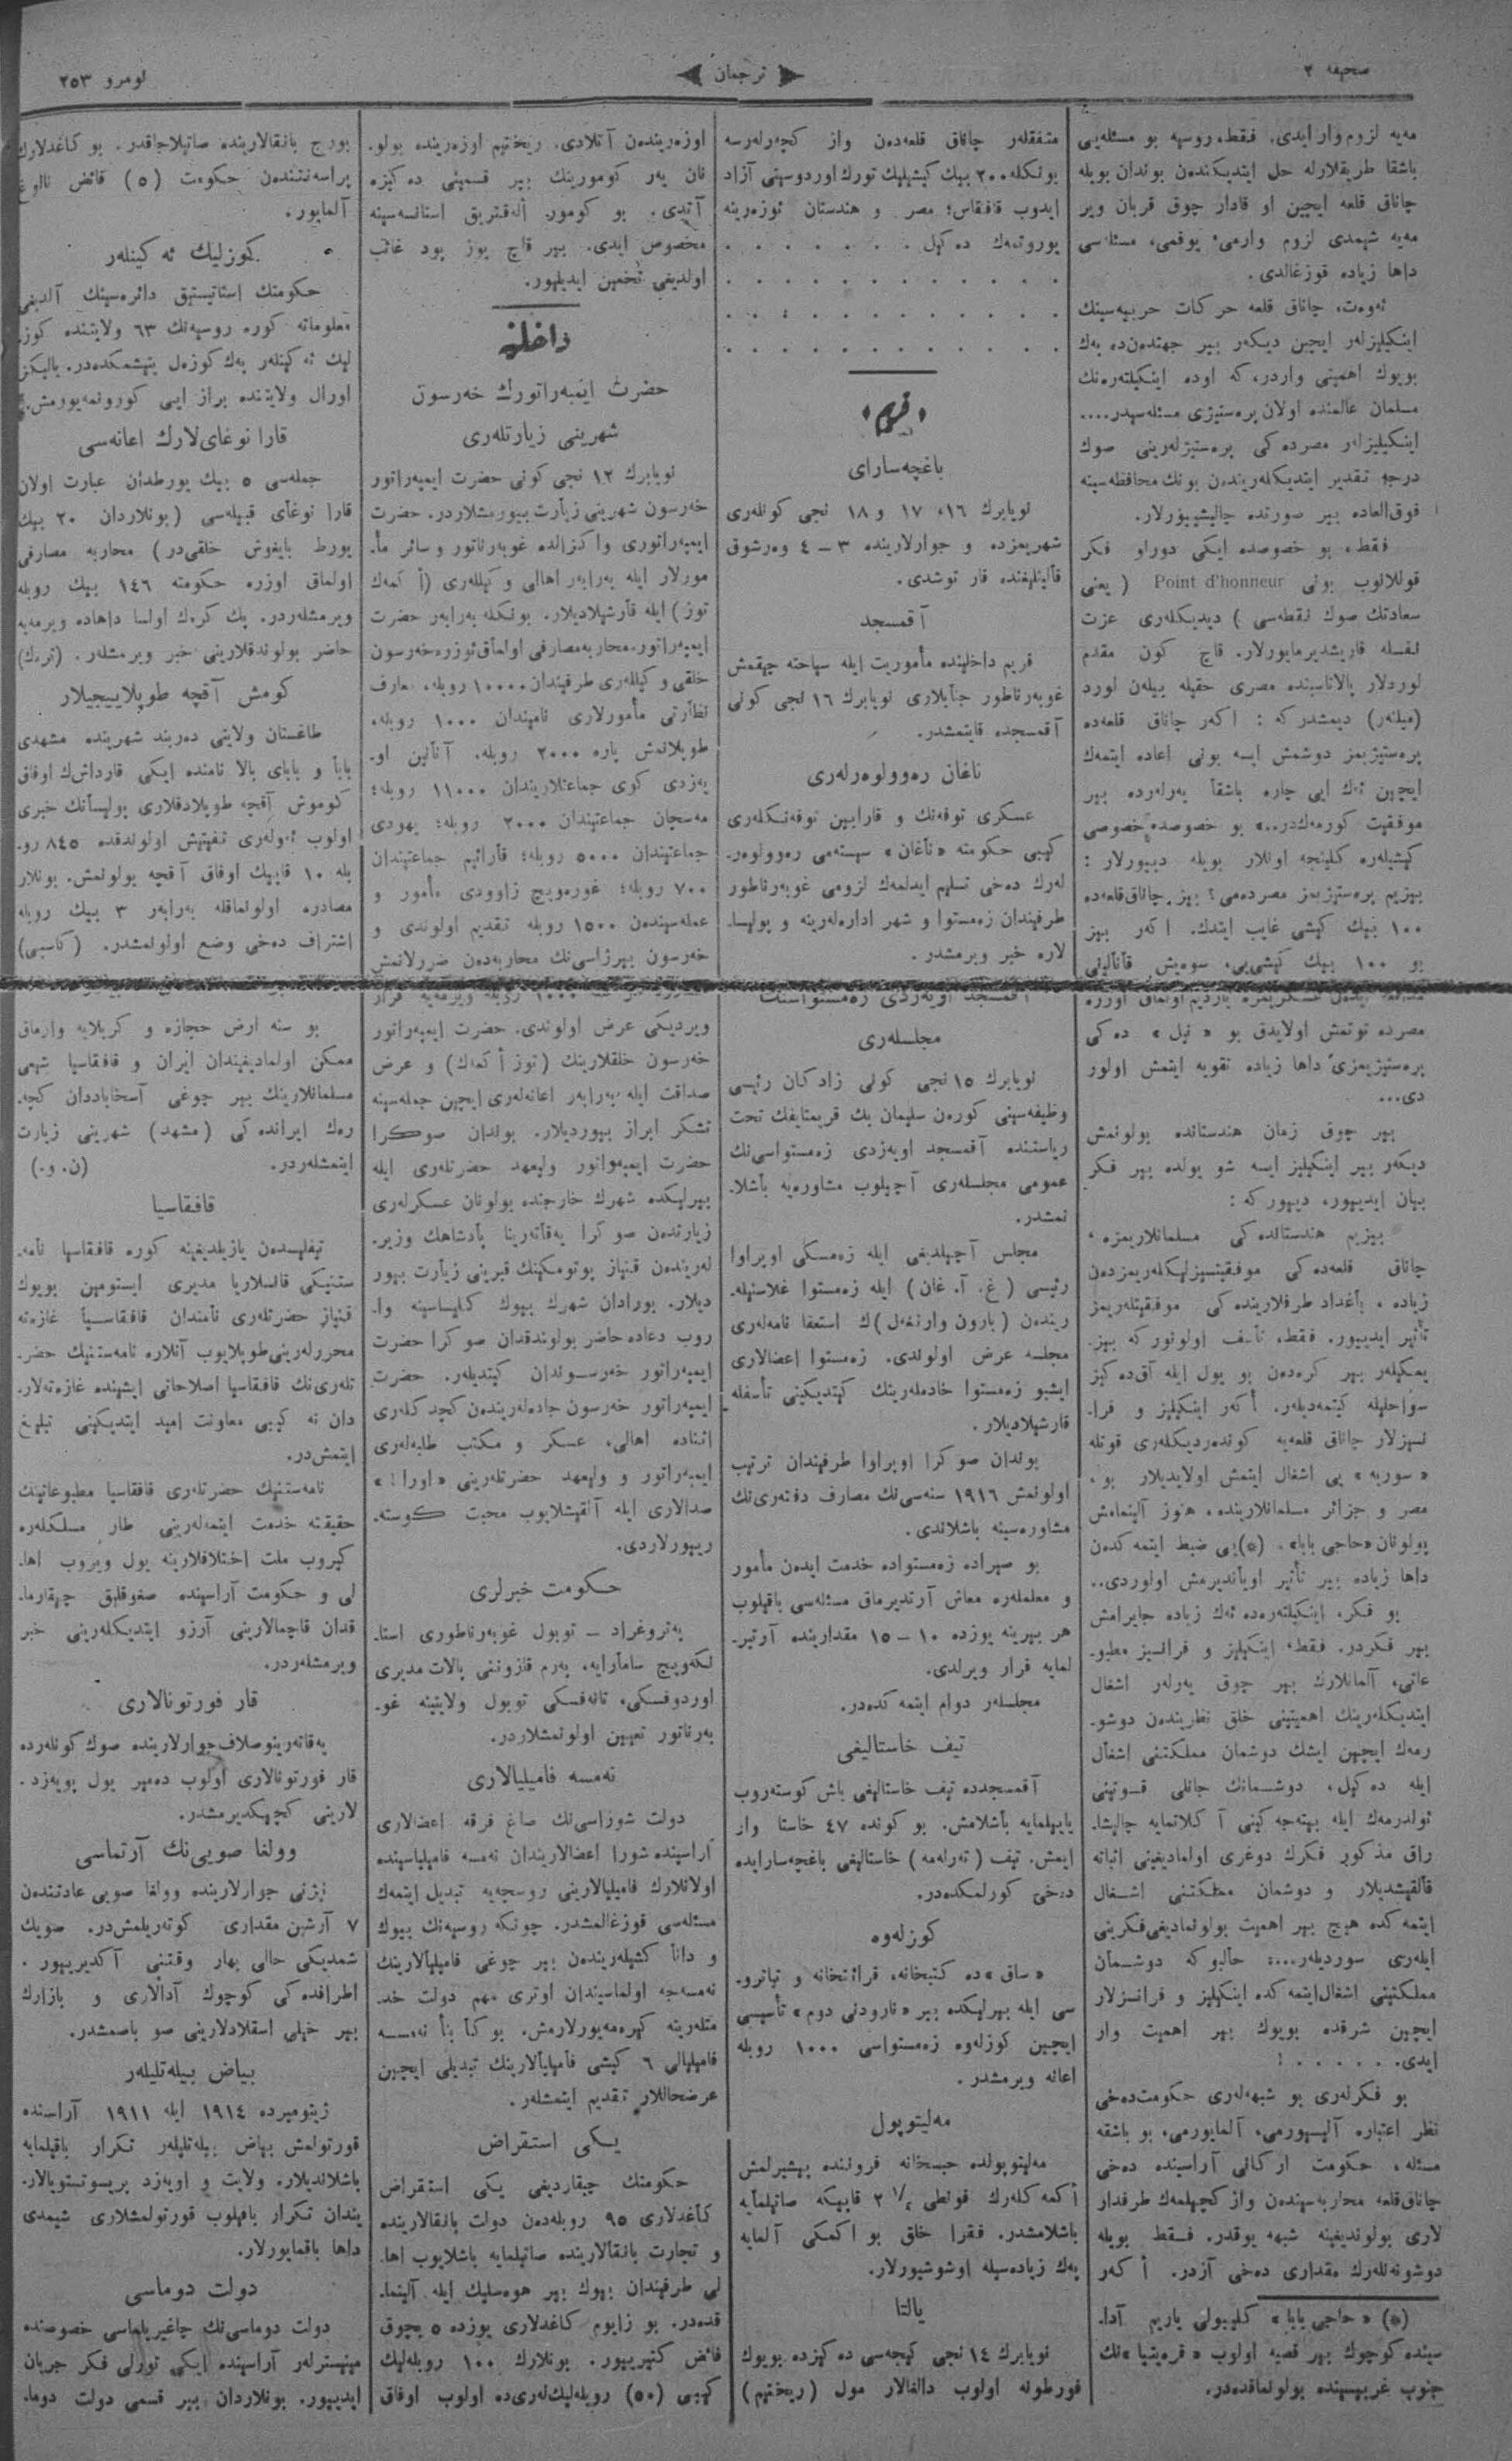 صحیفه ۲
ترجمان
نومرو ۲۵۳
مه‌یه لزوم وار ایدی. فقط، روسیه بو مسئله‌یی
باشقا طریقلارله حل ایتدیکندن بوندان بویله
چاناق قلعه ایچین او قادار چوق قربان ویر
مه‌یه شیمدی لزوم وارمی، یوقمی، مسئله‌سی
داها زیاده قوزغالدی.
ئه‌وه‌ت، چاناق قلعه حرکات حربیه‌سینك
اینکیلیزلر ایچین دیکه‌ر بیر جهتدن‌ده یه‌ك
بویوك اهمیتی واردر، که اوده اینکیلته‌ره‌نك
مسلمان عالمنده اولان پره‌ستیژی مسئله‌سیدر....
اینکیلیزلر مصرده‌کی پره‌ستیژلرینی صوك
درجه تقدیر ایتدیکلریندن بونك محافظه‌سینه
فوق‌العاده بیر صورتده چالیشیورلار.
فقط، بو خصوصده ایکی دورلو فکر
قوللانوب بونی Point d'honneur (یعنی
سعادتك صوك نقطه‌سی) دیدیکله‌ری عزت
نفسله قاریشدیرمایورلار. قاچ کون مقدم
لوردلار پالاتاسینده مصری حقیله بیله‌ن لورد
(میلنه‌ر) دیمشدرکه : اکه‌ر چاناق قلعه‌ده
پره‌ستیژیمز دوشمش ایسه بونی اعاده ایتمه‌ك
ایچین ئه‌ك ایی چاره باشقا یه‌رله‌رده بیر
موفقیت کورمه‌ك‌در..» بو خصوصده خصوصی
کیشیله‌ره کلینجه اونلار بویله دییورلار :
بیزیم پره‌ستیژیمز مصرده‌می؟ بیز چاناق‌قلعه‌ده
۱۰۰ بیك کیشی غایب ایتدك. اکه‌ر بیز
بو ۱۰۰ بیك کیشی‌یی، سوه‌یش قانالینی
مصرده توتمش اولایدق بو «نیل» ده‌کی
پره‌ستیژیمزی داها زیاده تقویه ایتمش اولور
دی...
بیر چوق زمان هندستانده بولونمش
دیکه‌ر بیر اینکیلیز ایسه شو یولده بیر فکر
بیان ایدییور، دییور که :
بیزیم هندستانده‌کی مسلمانلاریمزه،
چاناق قلعه‌ده‌کی موفقیتسیزلیکله‌ریمزدن
زیاده، باغداد طرفلارینده‌کی موفقیتله‌ریمز
تأثیر ایدییور. فقط، تأسف اولونورکه بیز.
یمکیله‌ر بیر کره‌ده‌ن بو یول ایله آق‌ده‌کیز
سواحلیله کیتمه‌دیله‌ر. اکه‌ر اینکیلیز و فرا.
نسیزلار چاناق قلعه‌یه کونده‌ردیکله‌ری قوتله
«سوریه» یی اشغال ایتمش اولایدیلار بو،
مصر و جزائر مسلمانلارینده، هنوز آلینمامش
بولونان «حاجی بابا». (*)یی ضبط ایتمه‌کدن
داها زیاده بیر تأثیر اویاندیرمش اولوردی..
بو فکر، اینکیلته‌ره‌ده ئه‌ك زیاده جایرامش
بیر فکردر. فقط، اینکیلیز و فرانسیز مطبو.
عاتی، آلمانلارك بیر چوق یه‌رله‌ر اشغال
ایتدیکله‌رینك اهمیتینی خلق نظریندن دوشو.
رمه‌ك ایچین ایشك دوشمان مملکتنی اشغال
ایله ده‌کیل، دوشمانك جانلی قوتینی
ئولدرمه‌ك ایله بیته‌جه‌کینی آکلاتمایه چالیشا.
راق مذکور فکرك دوغری اولمادیغینی اثباته
قالقیشدیلار و دوشمان مملکتنی اشغال
ایتمه‌کده هیچ بیر اهمیت بولونمادیغی‌فکرینی
ایلری سوردیله‌ر...؛ حالبوکه دوشمان
مملکتینی اشغال ایتمه‌کده اینکیلیز و فرانسزلار
ایچین شرقده بویوك بیر اهمیت وار
ایدی......!
بو فکرله‌ری بو شبهه‌له‌ری حکومت‌ده‌خی
نظر اعتباره آلییورمی، آلمایورمی، بو باشقه
مسئله، حکومت ارکانی آراسینده ده‌خی
چاناق‌قلعه محاربه‌سیندن وازکچیلمه‌ك طرفدار
لاری بولوندیغینه شبهه یوقدر. فقط بویله
دوشونه‌نله‌رك مقداری ده‌خی آزدر. اکه‌ر
(*) «حاجی بابا» کلیبولی یاریم آدا.
سینده کوچوك بیر قصبه اولوب «قره‌یتیا»نك
جنوب غربیسینده بولونماقده‌در.
متفقله‌ر چاناق قلعه‌دن واز کچه‌رله‌رسه
بونکله ۲۰۰ بیك کیشیلیك تورك اوردوسینی آزاد
ایدوب قافقاس؛ مصر و هندستان ئوزه‌رینه
یوروتمه‌ك ده‌کیل . . . . . . .
. . . . . . . . . . . .
. . . . . . . . . . . .
. . . . . . . . . . . .
«قریم»
باغچه‌سارای
نویابرك ۱۶، ۱۷ و ۱۸ نجی کونله‌ری
شهریمزده و جوارلارینده ۳ – ٤ وه‌رشوق
قالینلیغنده قار توشدی.
آقمسجد
قریم داخلینده مأموریت ایله سیاحته چیقمش
غوبه‌رناطور جنابلاری نویابرك ۱۶ نجی کونی
آقمسجده قایتمشدر.
ناغان ره‌وولوه‌رله‌ری
عسکری توفه‌نك و قارابین توفه‌نکله‌ری
کیبی حکومته «ناغان» سیسته‌می ره‌وولوه‌ر.
له‌رك ده‌خی تسلیم ایدلمه‌ك لزومی غوبه‌رناطور
طرفیندان زه‌مستوا و شهر اداره‌له‌رینه و پولیسا.
لاره خبر ویرمشدر.
آقمسجد اویه‌زدی زه‌مستواسنك
مجلسله‌ری
نویابرك ۱۵ نجی کونی زادکان رئیسی
وظیفه‌سینی کوره‌ن سلیمان بك قریمتایفك تحت
ریاستنده آقمسجد اویه‌زدی زه‌مستواسی‌نك
عمومی مجلسله‌ری آچیلوب مشاوره‌یه باشلا.
نمشدر.
مجلس آچیلدیغی ایله زه‌مسکی اوپراوا
رئیسی (غ. آ. غان) ایله زه‌مستوا غلاسنیله.
ریندن (بارون وارنغه‌ل)ك استعفا نامه‌له‌ری
مجلسه عرض اولوندی. زه‌مستوا اعضالاری
ایشبو زه‌مستوا خادمله‌رینك کیتدیکینی تأسفله
قارشیلادیلار.
بوندان صوکرا اوپراوا طرفیندان ترتیب
اولونمش ۱۹۱۶ سنه‌سی‌نك مصارف دفته‌ری‌نك
مشاوره‌سینه باشلاندی.
بو صیراده زه‌مستواده خدمت ایدن مأمور
و معلمله‌ره معاش آرتدیرماق مسئله‌سی باقیلوب
هر بیرینه یوزده ۱۰ – ۱۵ مقدارینده آرتیر.
لمایه قرار ویرلدی.
مجلسله‌ر دوام ایتمه‌کده‌در.
تیف خاستالیغی
آقمسجدده تیف خاستالیغی باش کوسته‌روب
یاییلمایه باشلامش. بو کونده ٤۷ خاستا وار
ایمش. تیف (ته‌رله‌مه) خاستالیغی باغچه‌سارایده
دخی کورلمکده‌در.
کوزله‌وه
«ساق»ده کتبخانه، قرائتخانه و تیاترو.
سی ایله بیرلیکده بیر «نارودنی دوم» تأسیسی
ایچین کوزله‌وه زه‌مستواسی ۱۰۰۰ روبله
اعانه ویرمشدر.
مه‌لیتوپول
مه‌لیتوپولده حبسخانه فرونینده پیشیرلمش
اکمه‌کله‌رك فونطی ۲ ۱/۲ قاپیکه صاتیلمایه
باشلامشدر. فقرا خلق بو اکمکی آلمایه
یه‌ك زیاده‌سیله اوشوشیورلار.
یالتا
نویابرك ۱٤ نجی کیجه‌سی ده‌کیزده بویوك
فورطونه اولوب دالغالار مول (ریختیم)
اوزه‌ریندن آتلادی. ریختیم اوزه‌رینده بولو.
نان یه‌ر کومورینك بیر قسمینی ده‌کیزه
آتدی. بو کومور الەقتریق استانسه‌سینه
مخصوص ایدی. بیر قاچ یوز پود غائب
اولدیغی تخمین ایدیلیور.
داخلیه
حضرت ایمپه‌راتورك خه‌رسون
شهرینی زیارتله‌ری
نویابرك ۱۲ نجی کونی حضرت ایمپه‌راتور
خه‌رسون شهرینی زیارت بیورمشلاردر. حضرت
ایمپه‌راتوری واکزالده غوبه‌رناتور و سائر مأ.
مورلار ایله به‌رابه‌ر اهالی وکیللەری (اکمه‌ك
توز) ایله قارشیلادیلار. بونکله به‌رابه‌ر حضرت
ایمپه‌راتوره محاربه مصارفی اولماق‌ئوزره خه‌رسون
خلقی وکیللەری طرفیندان ۱۰۰۰۰ روبله، معارف
نظارتی مأمورلاری نامیندان ۱۰۰۰ روبله،
طوپلانمش پاره ۲۰۰۰ روبله، آنانین او.
یه‌زدی کوی جماعتلاریندان ۱۱۰۰۰ روبله؛
مه‌سچان جماعتیندان ۲۰۰۰ روبله؛ یهودی
جماعتیندان ۵۰۰۰ روبله؛ قارائیم جماعتیندان
۷۰۰ روبله؛ غوره‌ویچ زاوودی مأمور و
عمله‌سیندن ۱۵۰۰ روبله تقدیم اولوندی و
خه‌رسون بیرژاسی‌نك محاربه‌دن ضررلانمش
ویردیکی عرض اولوندی. حضرت ایمپه‌راتور
خه‌رسون خلقلارینك (توز اکمه‌ك) و عرض
صداقت ایله به‌رابه‌ر اعانه‌له‌ری ایچین جمله‌سینه
تشکر ابراز بیوردیلار. بوندان صوکرا
حضرت ایمپه‌راتور ولیعهد حضرتله‌ری ایله
بیرلیکده شهرك خارجنده بولونان عسکرله‌ری
زیارتدن صوکرا یه‌قاته‌رینا پادشاهك وزیر.
له‌ریندن قنیاز پوتومکینك قبرینی زیارت بیور
دیلار. بورادان شهرك بیوك کلیساسینه وا.
روب دعاده حاضر بولوندقدان صوکرا حضرت
ایمپه‌راتور خه‌رسوندان کیتدیله‌ر. حضرت
ایمپه‌راتور خه‌رسون جاده‌له‌ریندن کچدکله‌ری
اثناده اهالی، عسکر و مکتب طلبه‌له‌ری
ایمپه‌راتور و ولیعهد حضرتله‌رینی «اورا!»
صدالاری ایله آلقیشلایوب محبت کوسته.
ریورلاردی.
حکومت خبرلری
په‌تروغراد – توبول غوبه‌رناطوری استا.
نکه‌ویچ سامارایه، په‌رم قازوننی پالات مدیری
اوردوفسکی، تانه‌فسکی توبول ولایتینه غو.
به‌رناتور تعیین اولونمشلاردر.
نه‌مسه فامیلیالاری
دولت شوراسی‌نك صاغ فرقه اعضالاری
آراسینده شورا اعضالاریندان نه‌مسه فامیلیاسینده
اولانلارك فامیلیالارینی روسجه‌یه تبدیل ایتمه‌ك
مسئله‌سی قوزغالمشدر. چونکه روسیه‌نك بیوك
و دانا کشیله‌ریندن بیر چوغی فامیلیالارینك
نه‌مسه‌جه اولماسیندان اوتری مهم دولت خد.
متله‌رینه کیره‌مه‌یورلارمش. بوکا بنأ نه‌مسه
فامیلیالی ۶ کیشی فامیلیالارینك تبدیلی ایچین
عرضحاللار تقدیم ایتمشله‌ر.
یکی استقراض
حکومتك چیقاردیغی یکی استقراض
کاغدلاری ۹۵ روبله‌دن دولت بانقالارینده
و تجارت بانقالارینده صاتیلمایه باشلایوب اها.
لی طرفیندان بیوك بیر هوه‌سلیك ایله آلینما.
قده‌در. بو زایوم کاغدلاری یوزده ۵ بچوق
فائض کتیرییور. بونلارك ۱۰۰ روبله‌لیك
کیبی (۵۰) روبله‌لیك‌له‌ری‌ده اولوب اوفاق
بورج بانقالارینده صاتیلاجاقدر. بو کاغدلارك
پراسه‌نتندن حکومت (۵) فائض نالوغ
آلمایور.
کوزلیك ئه‌کینله‌ر
حکومتك استاتیستیق دائره‌سینك آلدیغی
معلوماته کوره روسیه‌نك ۶۳ ولایتنده کوز.
لیك ئه‌کینله‌ر یه‌ك کوزه‌ل ییتشمکده‌در. یالیکز
اورال ولایتنده براز ایی کورونمه‌یورمش.
قارا نوغای‌لارك اعانه‌سی
جمله‌سی ۵ بیك یورطدان عبارت اولان
قارا نوغای قبیله‌سی (بونلاردان ۲۰ بیك
یورط بایغوش خلقی‌در) محاربه مصارفی
اولماق اوزره حکومته ۱٤۶ بیك روبله
ویرمشله‌ردر. پك کره‌ك اولسا داهاده ویرمه‌یه
حاضر بولوندقلارینی خبر ویرمشله‌ر. (ترك)
کومش آقچه طوپلاییجیلار
طاغستان ولایتی ده‌ربند شهرینده مشهدی
بابا و بابای بالا نامنده ایکی قارداش‌ك اوفاق
کوموش آقچه طوپلادقلاری پولیسانك خبری
اولوب ئه‌وله‌ری تفتیش اولوندقده ۸٤۵ رو.
بله ۱۰ قاپیك اوفاق آقچه بولونمش. بونلار
مصادره اولونماقله به‌رابه‌ر ۳ بیك روبله
اشتراف ده‌خی وضع اولونمشدر. (کاسپی)
بو سنه ارض حجازه و کربلایه وارماق
ممکن اولمادیغیندان ایران و قافقاسیا شیعی
مسلمانلارینك بیر چوغی آسخاباددان کچه.
ره‌ك ایرانده‌کی (مشهد) شهرینی زیارت
ایتمشله‌ردر. (ن. و.)
قافقاسیا
تیفلیسدن یازیلدیغینه کوره قافقاسیا نامه.
ستنیکی قانسلاریا مدیری ایستومین بویوك
قنیاز حضرتله‌ری نامندان قافقاسیا غازه‌ته
محررله‌رینی‌طوپلایوب آنلاره نامه‌ستنیك حضر.
تله‌ری‌نك قافقاسیا اصلاحاتی ایشینده غازه‌ته‌لار.
دان نه کیبی معاونت امید ایتدیکینی تبلیغ
ایتمش‌در.
نامه‌ستنیك حضرتله‌ری قافقاسیا مطبوعاتینك
حقیقته خدمت ایتمه‌له‌رینی طار مسلکله‌ره
کیروب ملت اختلافلارینه یول ویروب اها.
لی و حکومت آراسینده صغوقلیق چیقارما.
قدان قاچمالارینی آرزو ایتدیکله‌رینی خبر
ویرمشله‌ردر.
قار فورتونالاری
یه‌قاته‌رینوصلاف جوارلارینده صوك کونله‌رده
قار فورتونالاری اولوب ده‌میر یول پویه‌زد.
لارینی کچیکدیرمشدر.
وولغا صویی‌نك آرتماسی
نیژنی جوارلارینده وولغا صویی عادتندن
۷ آرشین مقداری کوته‌ریلمش‌در. صویك
شمدیکی حالی بهار وقتنی آکدیرییور.
اطرافده‌کی کوچوك آدالاری و بازارك
بیر خیلی اسقلادلارینی صو باصمشدر.
بیاض بیله‌تلیله‌ر
ژیتومیرده ۱۹۱٤ ایله ۱۹۱۱ آراسنده
قورتولمش بیاض بیله‌تلیله‌ر تکرار باقیلمایه
باشلاندیلار. ولایت و اویه‌زد پریسوتستویالار.
یندان تکرار باقیلوب قورتولمشلاری شیمدی
داها باقمایورلار.
دولت دوماسی
دولت دوماسی‌نك چاغیریلماسی خصوصنده
مینیسترله‌ر آراسینده ایکی تورلی فکر جریان
ایدییور. بونلاردان بیر قسمی دولت دوما.